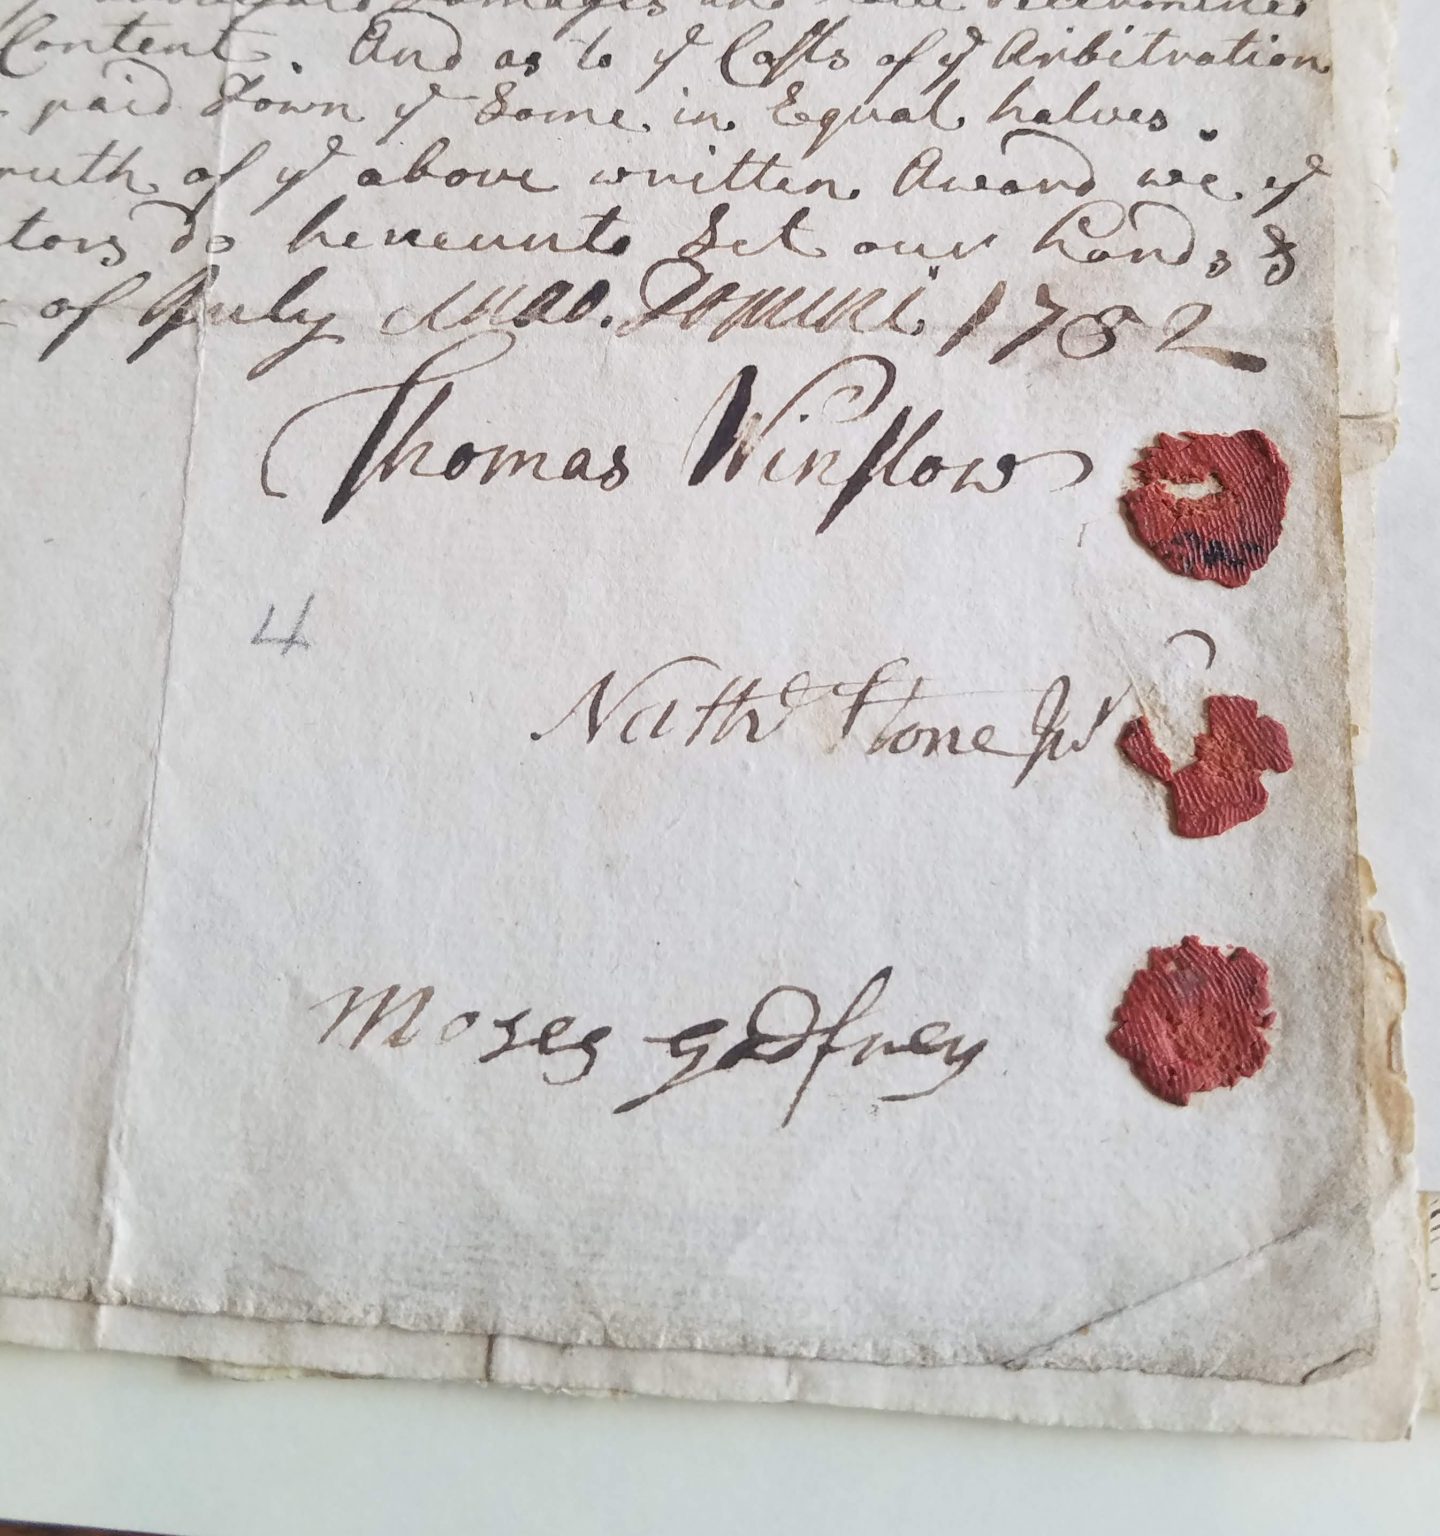 Damages and
Content. And as to yͤ Costs of yͤ Arbitration
paid Down yͤ Same in Equal halves.
ruth of yͤ above written Award we yͤ
tors do hereunto Set our hands &
of July Anno. Domini 1752
Thomas Winslow
4
Nathˡ Stone Juʳ
Moses Godfrey